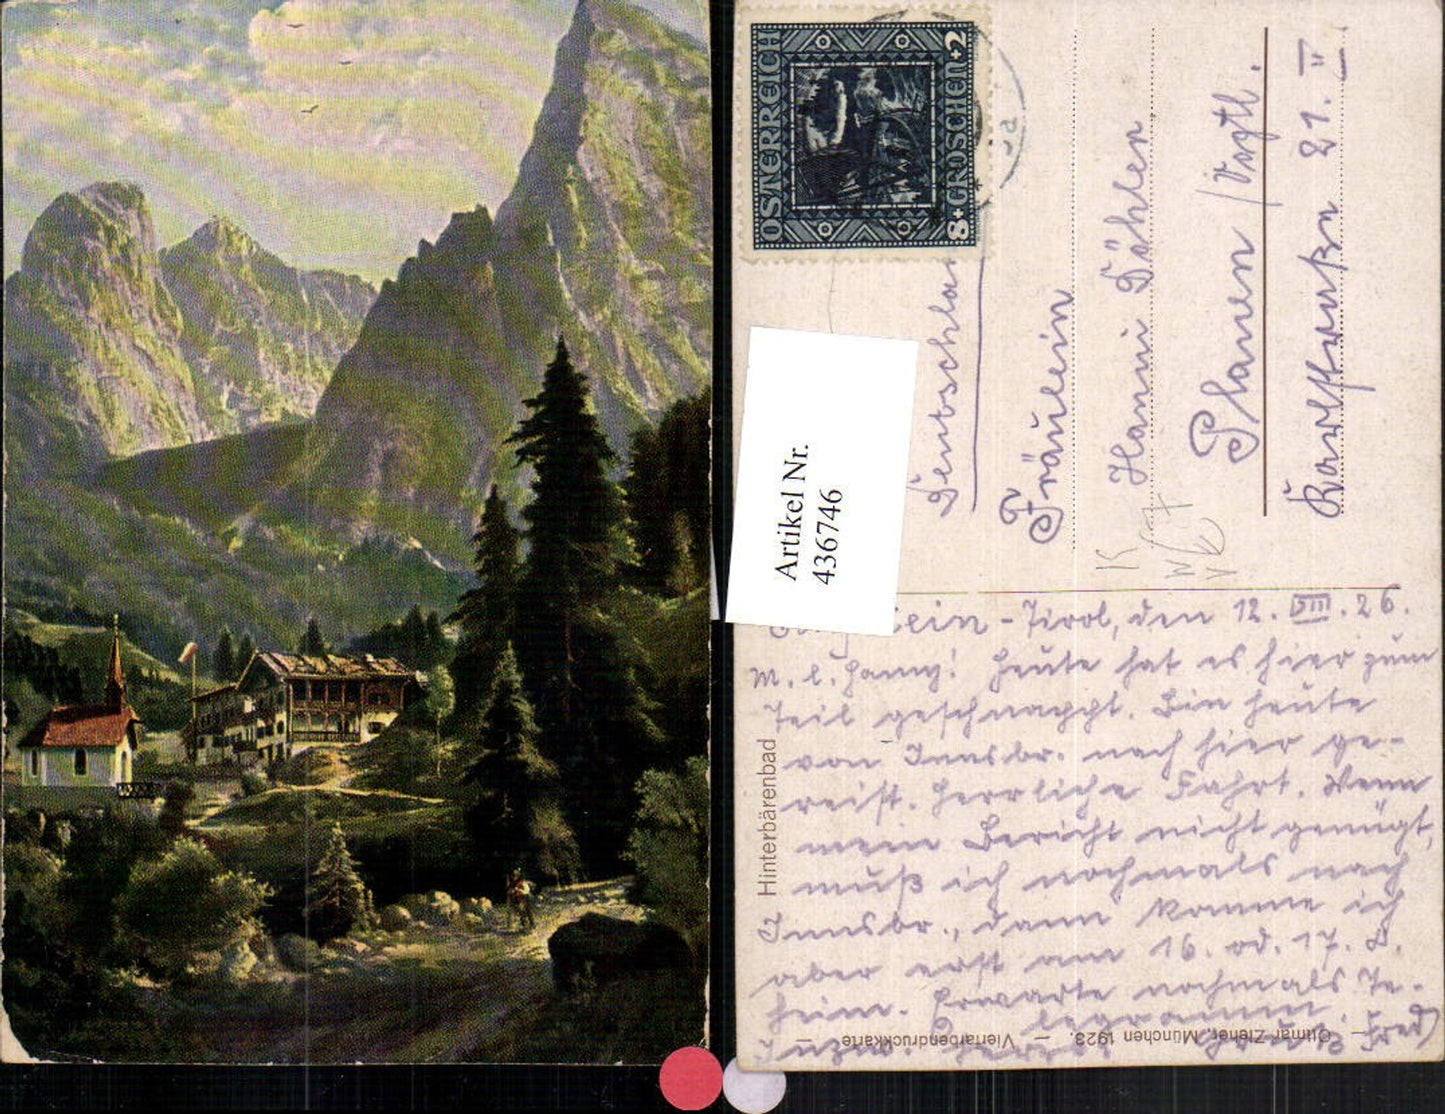 ÖSTERREICH
8+GROSCHEN+2
Artikel Nr.
436746
Fräulein
Hanni Döhler
Plauen /Vogtl.
21. II
Hinterbärenbad
-Tirol, den 12. VIII. 26.
M. l. Hanny! Heute hat es hier zum
Teil geschnappt. Bin heute
von Innsbr. nach hier ge-
reist. Herrliche Fahrt. Wenn
mein Bericht nicht genügt,
muß ich nochmals nach
Innsbr., dann komme ich
aber erst am 16. od. 17. d.
heim. Erwarte nochmals Te-
legramm.
Fred
Ottmar Zieher, München 1923. — Vierfarbendruckkarte —